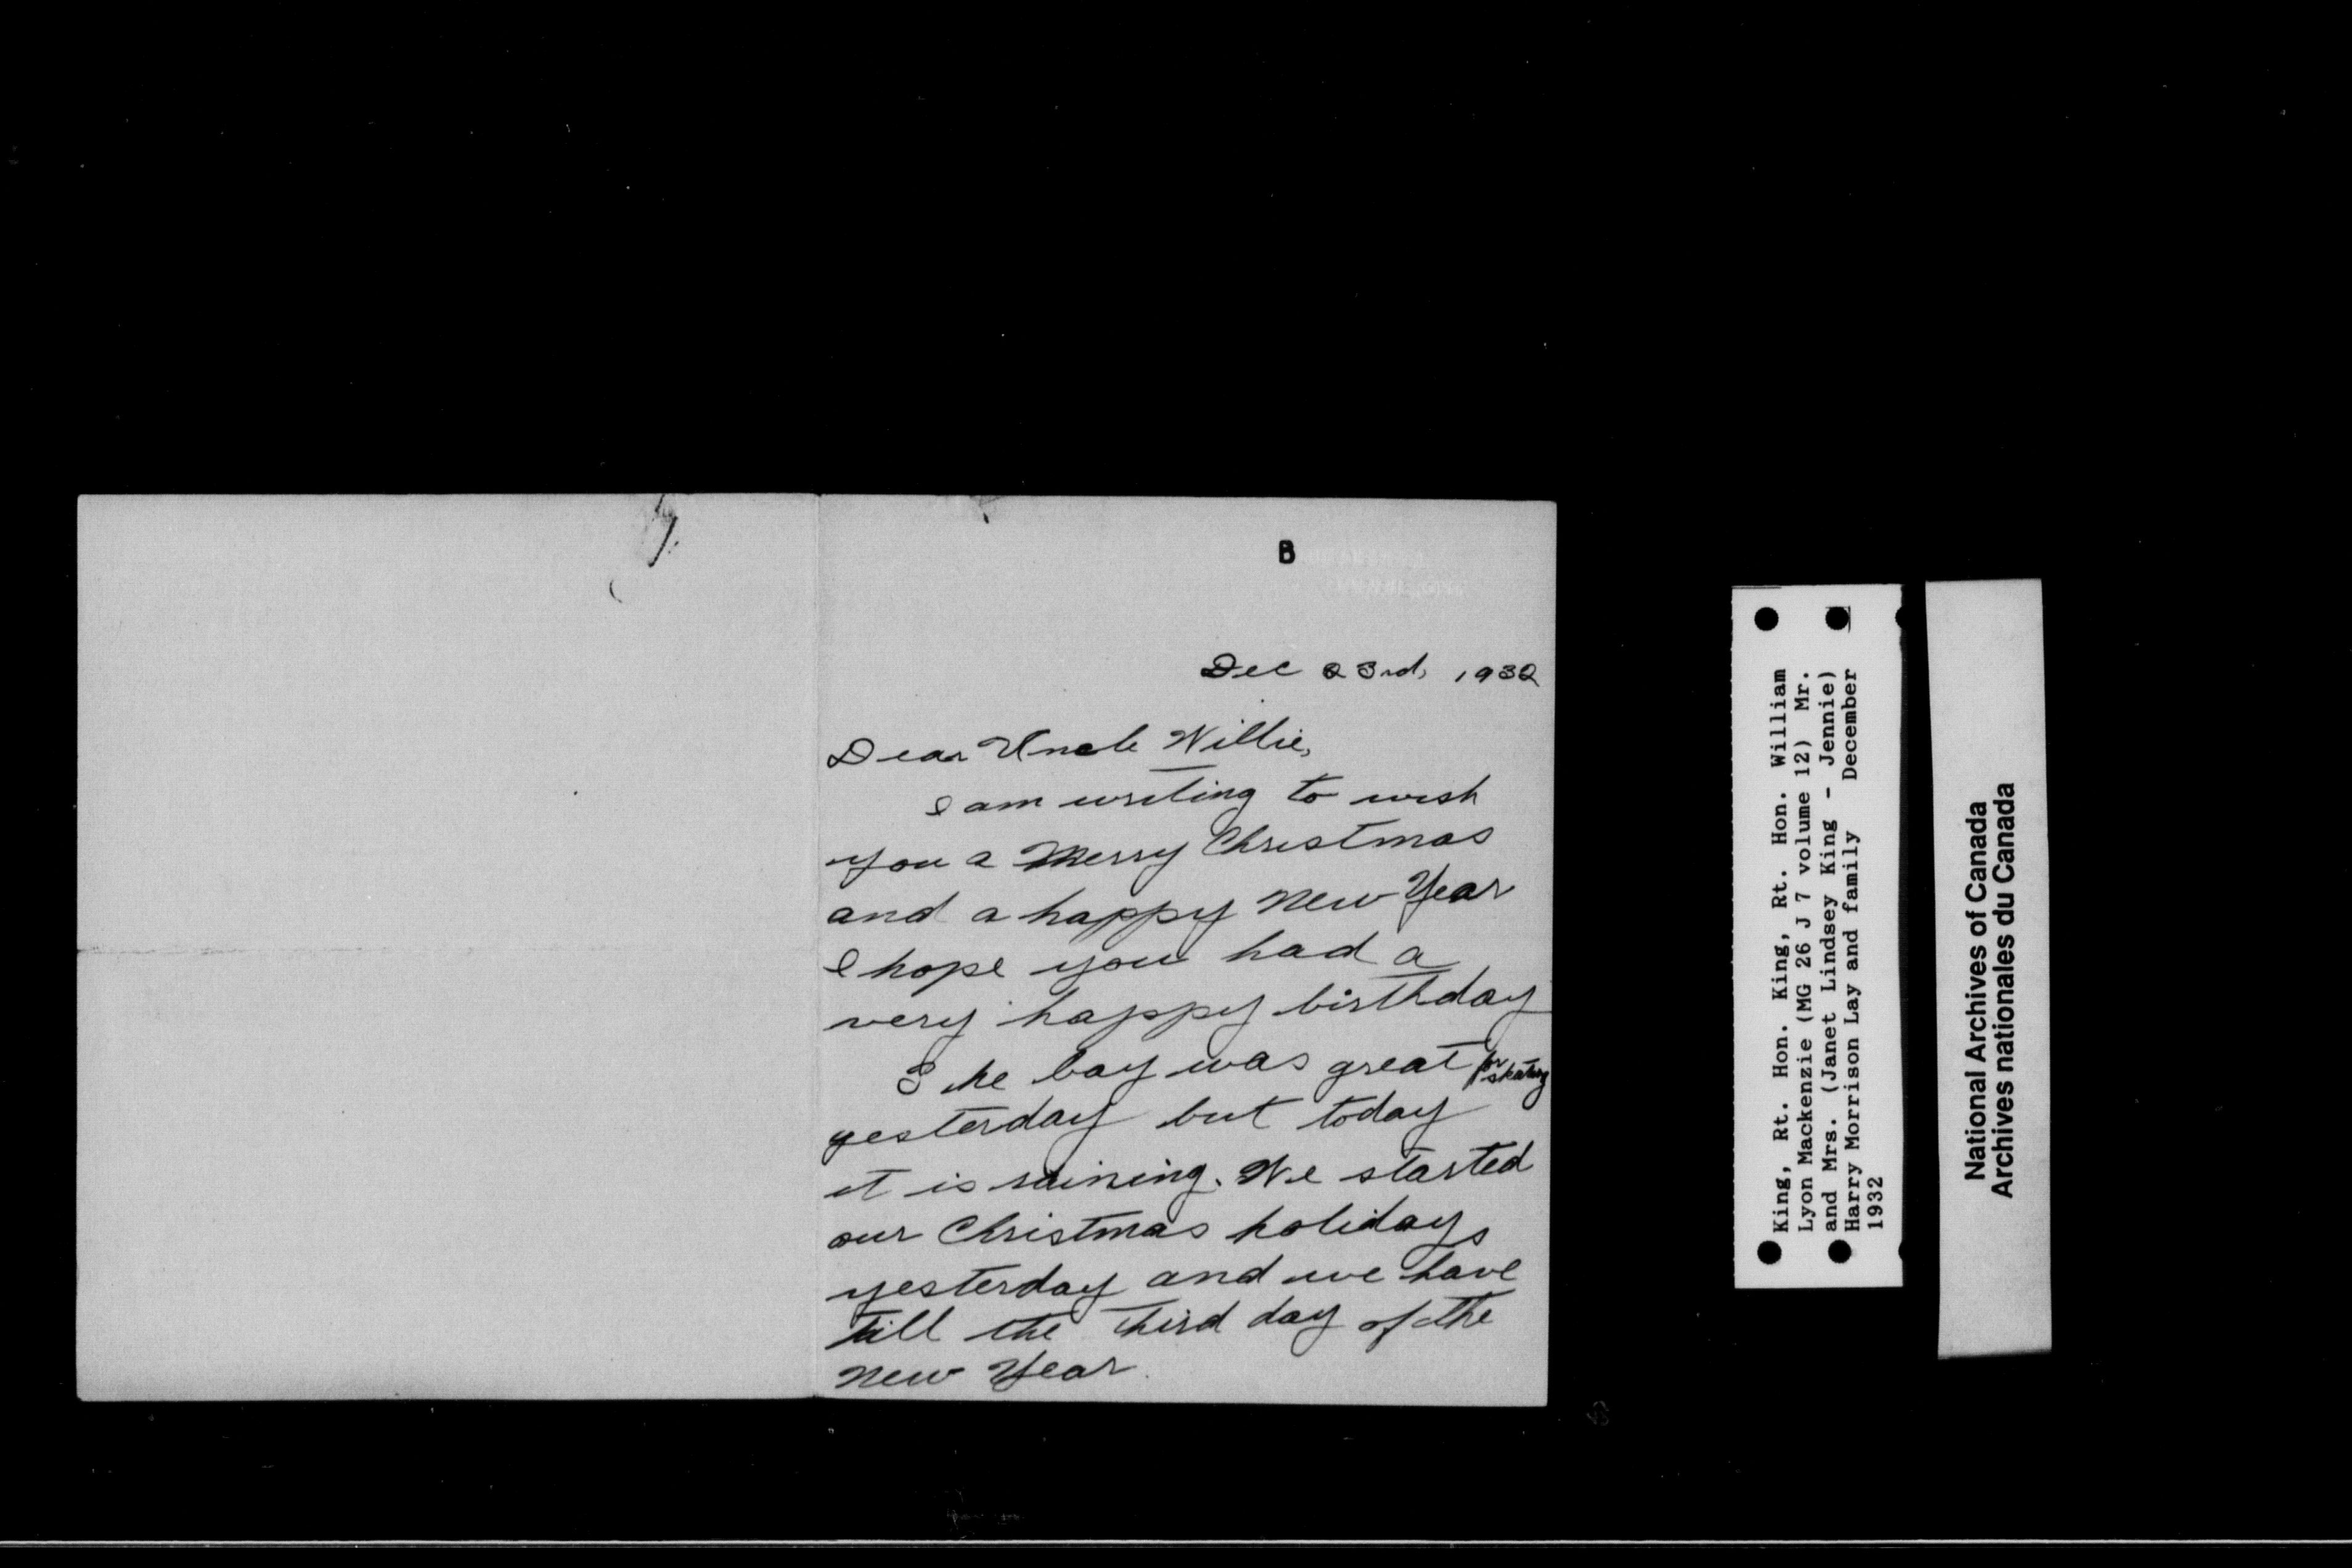 B
Dec 23rd, 1932
Dear Uncle Willie,
I am writing to wish
you a Merry Christmas
and a happy New Year
I hope you had a
very happy birthday
The bay was great for skating
yesterday but today
it is raining. We started
our Christmas holidays
yesterday and we have
till the third day of the
New Year.
King, Rt. Hon. King, Rt. Hon. William
Lyon Mackenzie (MG 26 J 7 volume 12) Mr.
and Mrs. (Janet Lindsey King - Jennie)
Harry Morrison Lay and family December
1932
National Archives of Canada
Archives nationales du Canada